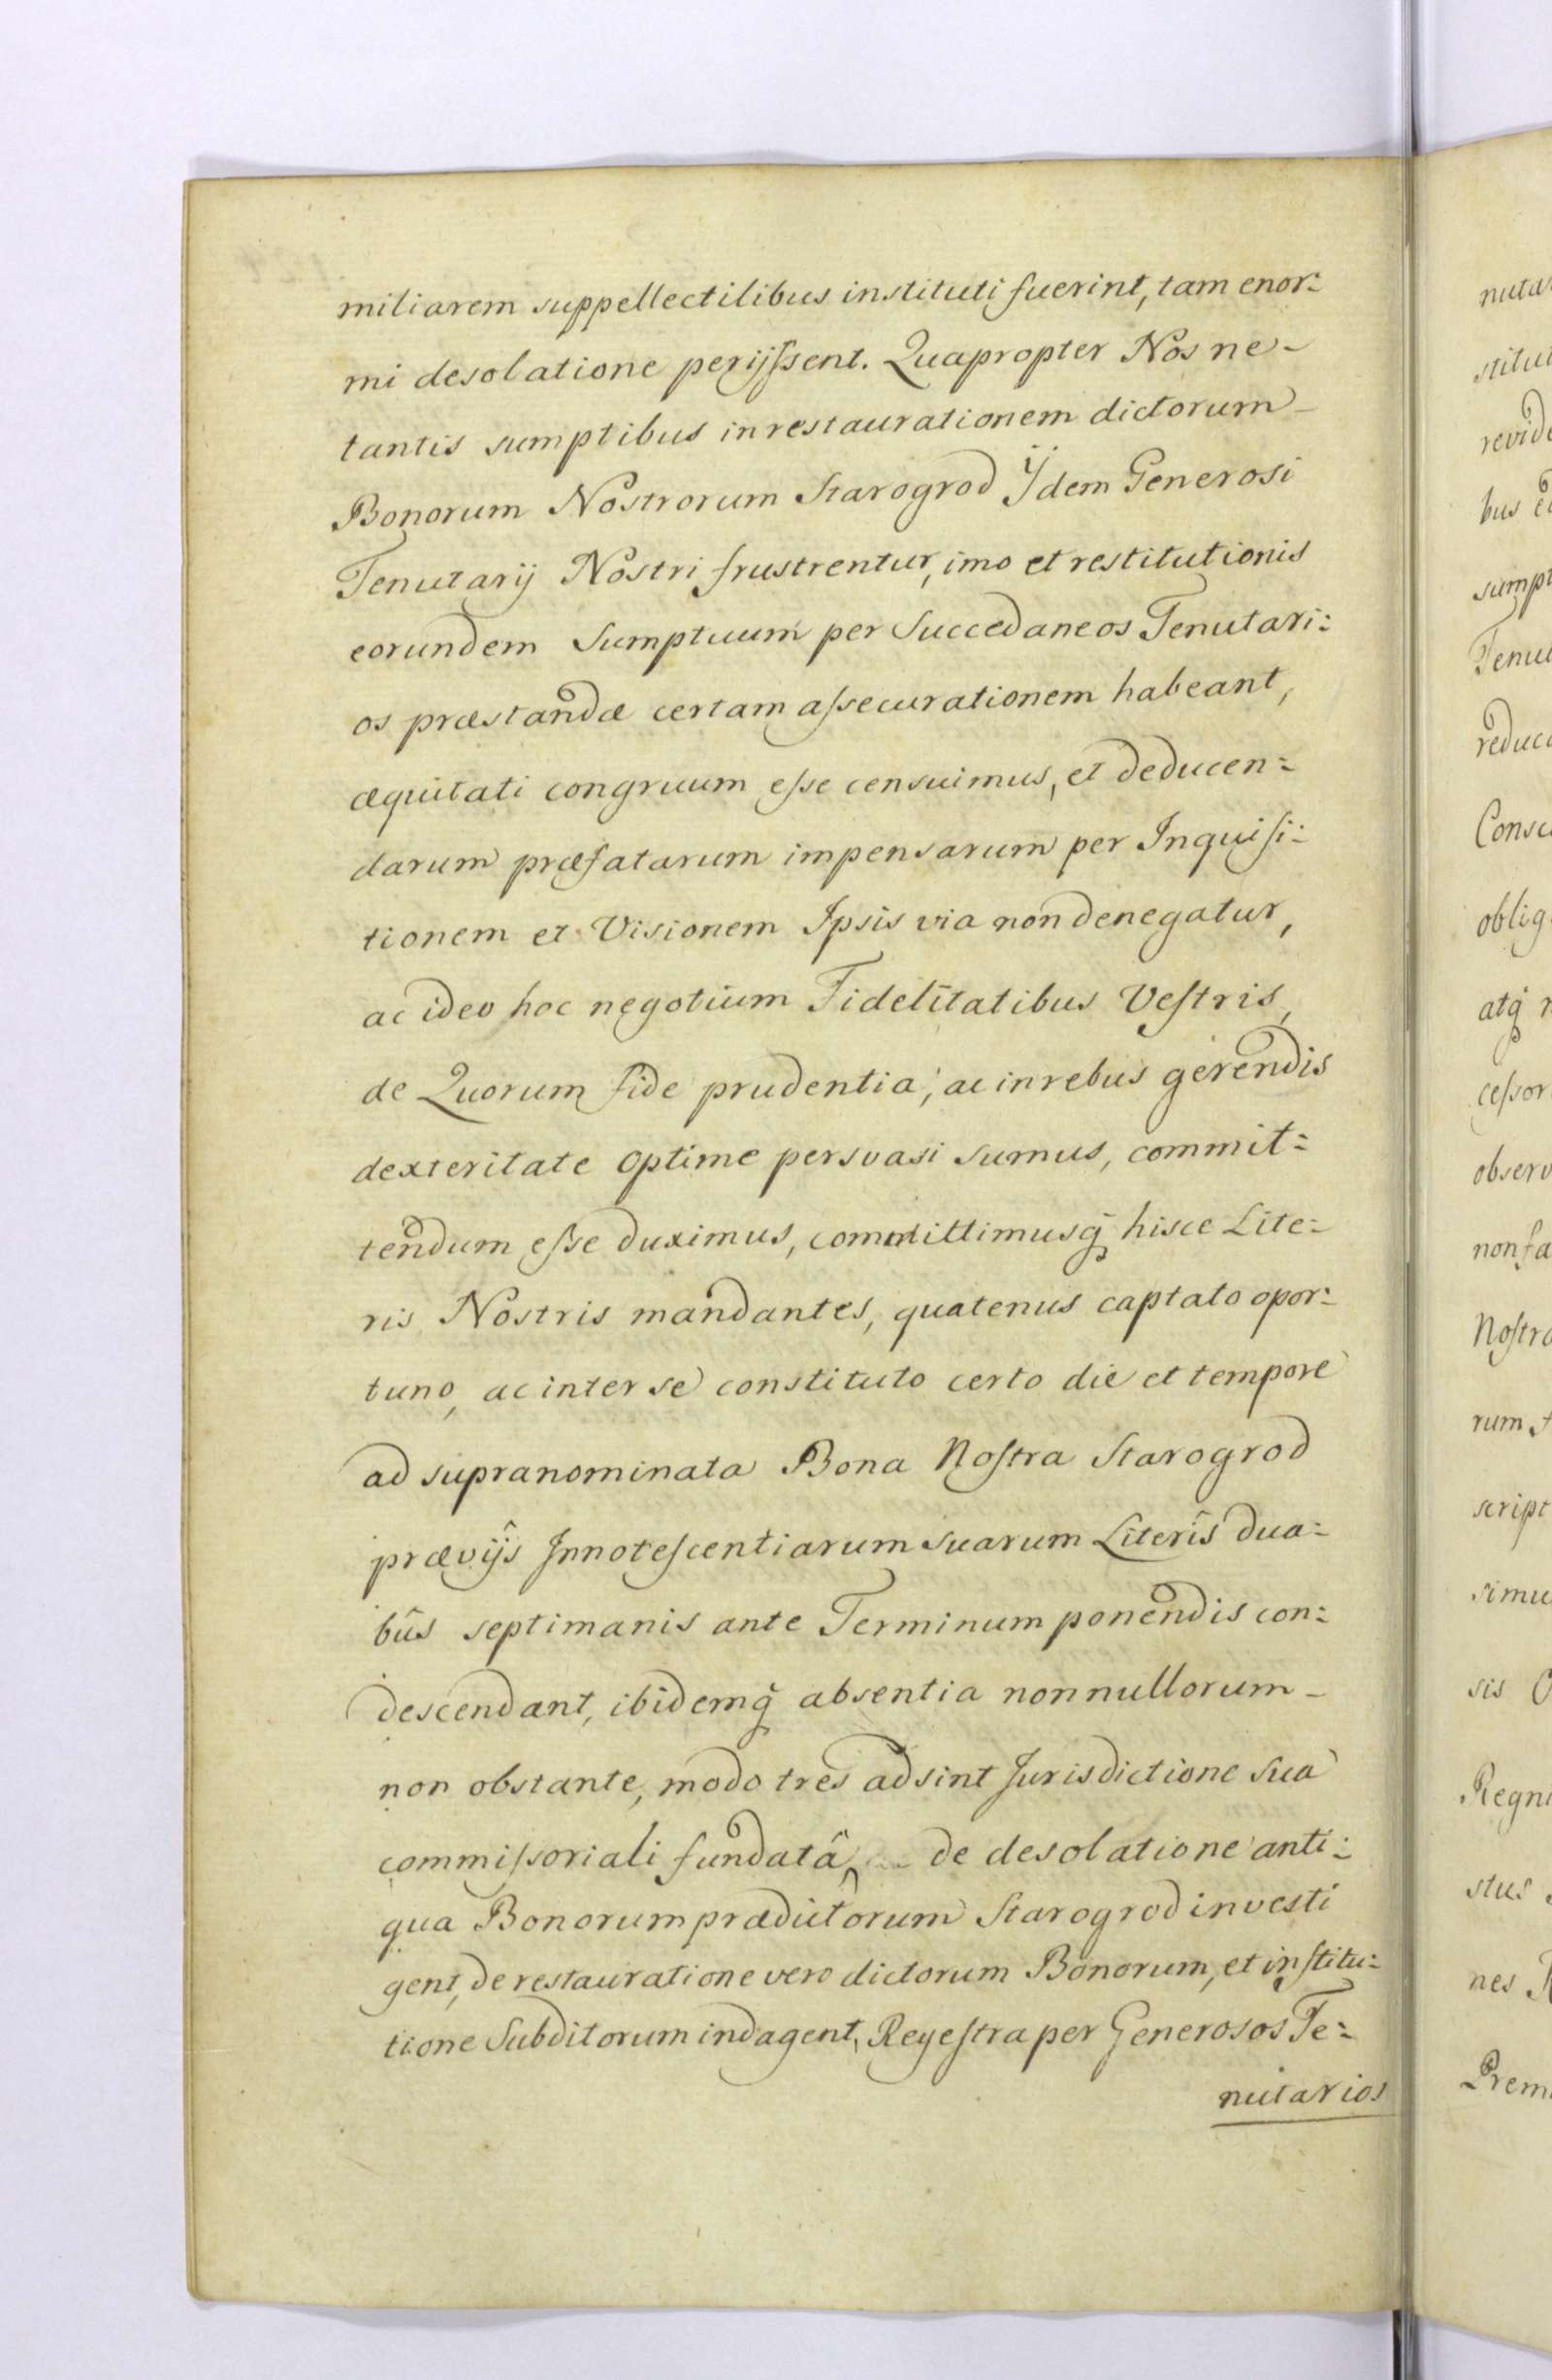 miliarem suppellectilibus instituti fuerint, tam enor:
mi desolatione perijſsent. Quapropter Nos ne-
tantis sumptibus in restaurationem dictorum-
Bonorum Nostrorum Starogrod Ijdem Generosi
Tenutarij Nostri frustrentur, imo et restitutionis
eorundem Sumptuum per Succedaneos Tenutari:
os præstandæ certam aſsecurationem habeant,
æquitati congruum eſse censuimus, et deducen:
darum præfatarum impensarum per Inquiſi:
tionem et Visionem Ipsis via non denegatur,
ac ideo hoc negotium Fidelitatibus Veſtris,
de Quorum fide prudentia, ac in rebus gerendis
dexteritate optime persvasi sumus, commit:
tendum eſse duximus, committimusq̃ hisce Lite:
ris Nostris mandantes, quatenus captato opor:
tuno, ac inter se constituto certo die et tempore
ad supranominata Bona Noſtra Starogrod
prævijs Innoteſcentiarum suarum Literîs dua:
bûs septimanis ante Terminum ponendis con:
descendant, ibidemq̃ absentia nonnullorum-
non obstante, modo tres adsint Jurisdictione Sua
commiſsoriali fundatâ, de desolatione anti:
qua Bonorum prædictorum Starogrod investi
gent, de restauratione vero dictorum Bonorum, et inſtitu:
tione Subditorum indagent, Regeſtra per Generosos Te:
nutarios
nuta
stitut
revide
bus
sumpt
Tenu
reduc
Conse
oblig
atq̃
ceſsor
observ
non fa
Noſtr
rum
script
simu
sis
Regni
stus
nes
Prem